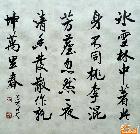 冰雪林中著此
身不同桃李混
芳塵忽然一夜
清香發散作乾
坤萬里春